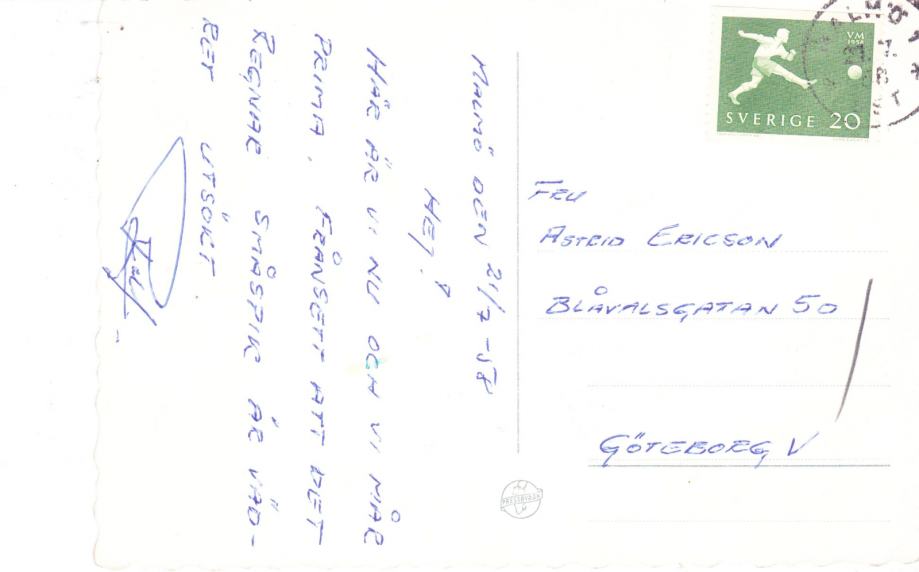 MALMÖ DEN 21/7-58
HEJ!
HÄR ÄR VI NU OCH VI MÅR
PRIMA, FRÅNSETT ATT DET
REGNAR SMÅSPIK ÄR VÄD-
RET UTSÖKT.
VM
1958
SVERIGE 20
MALMÖ
FRU
ASTRID ERICSON
BLÅVALSGATAN 50
GÖTEBORG V
PRESSBYRÅN